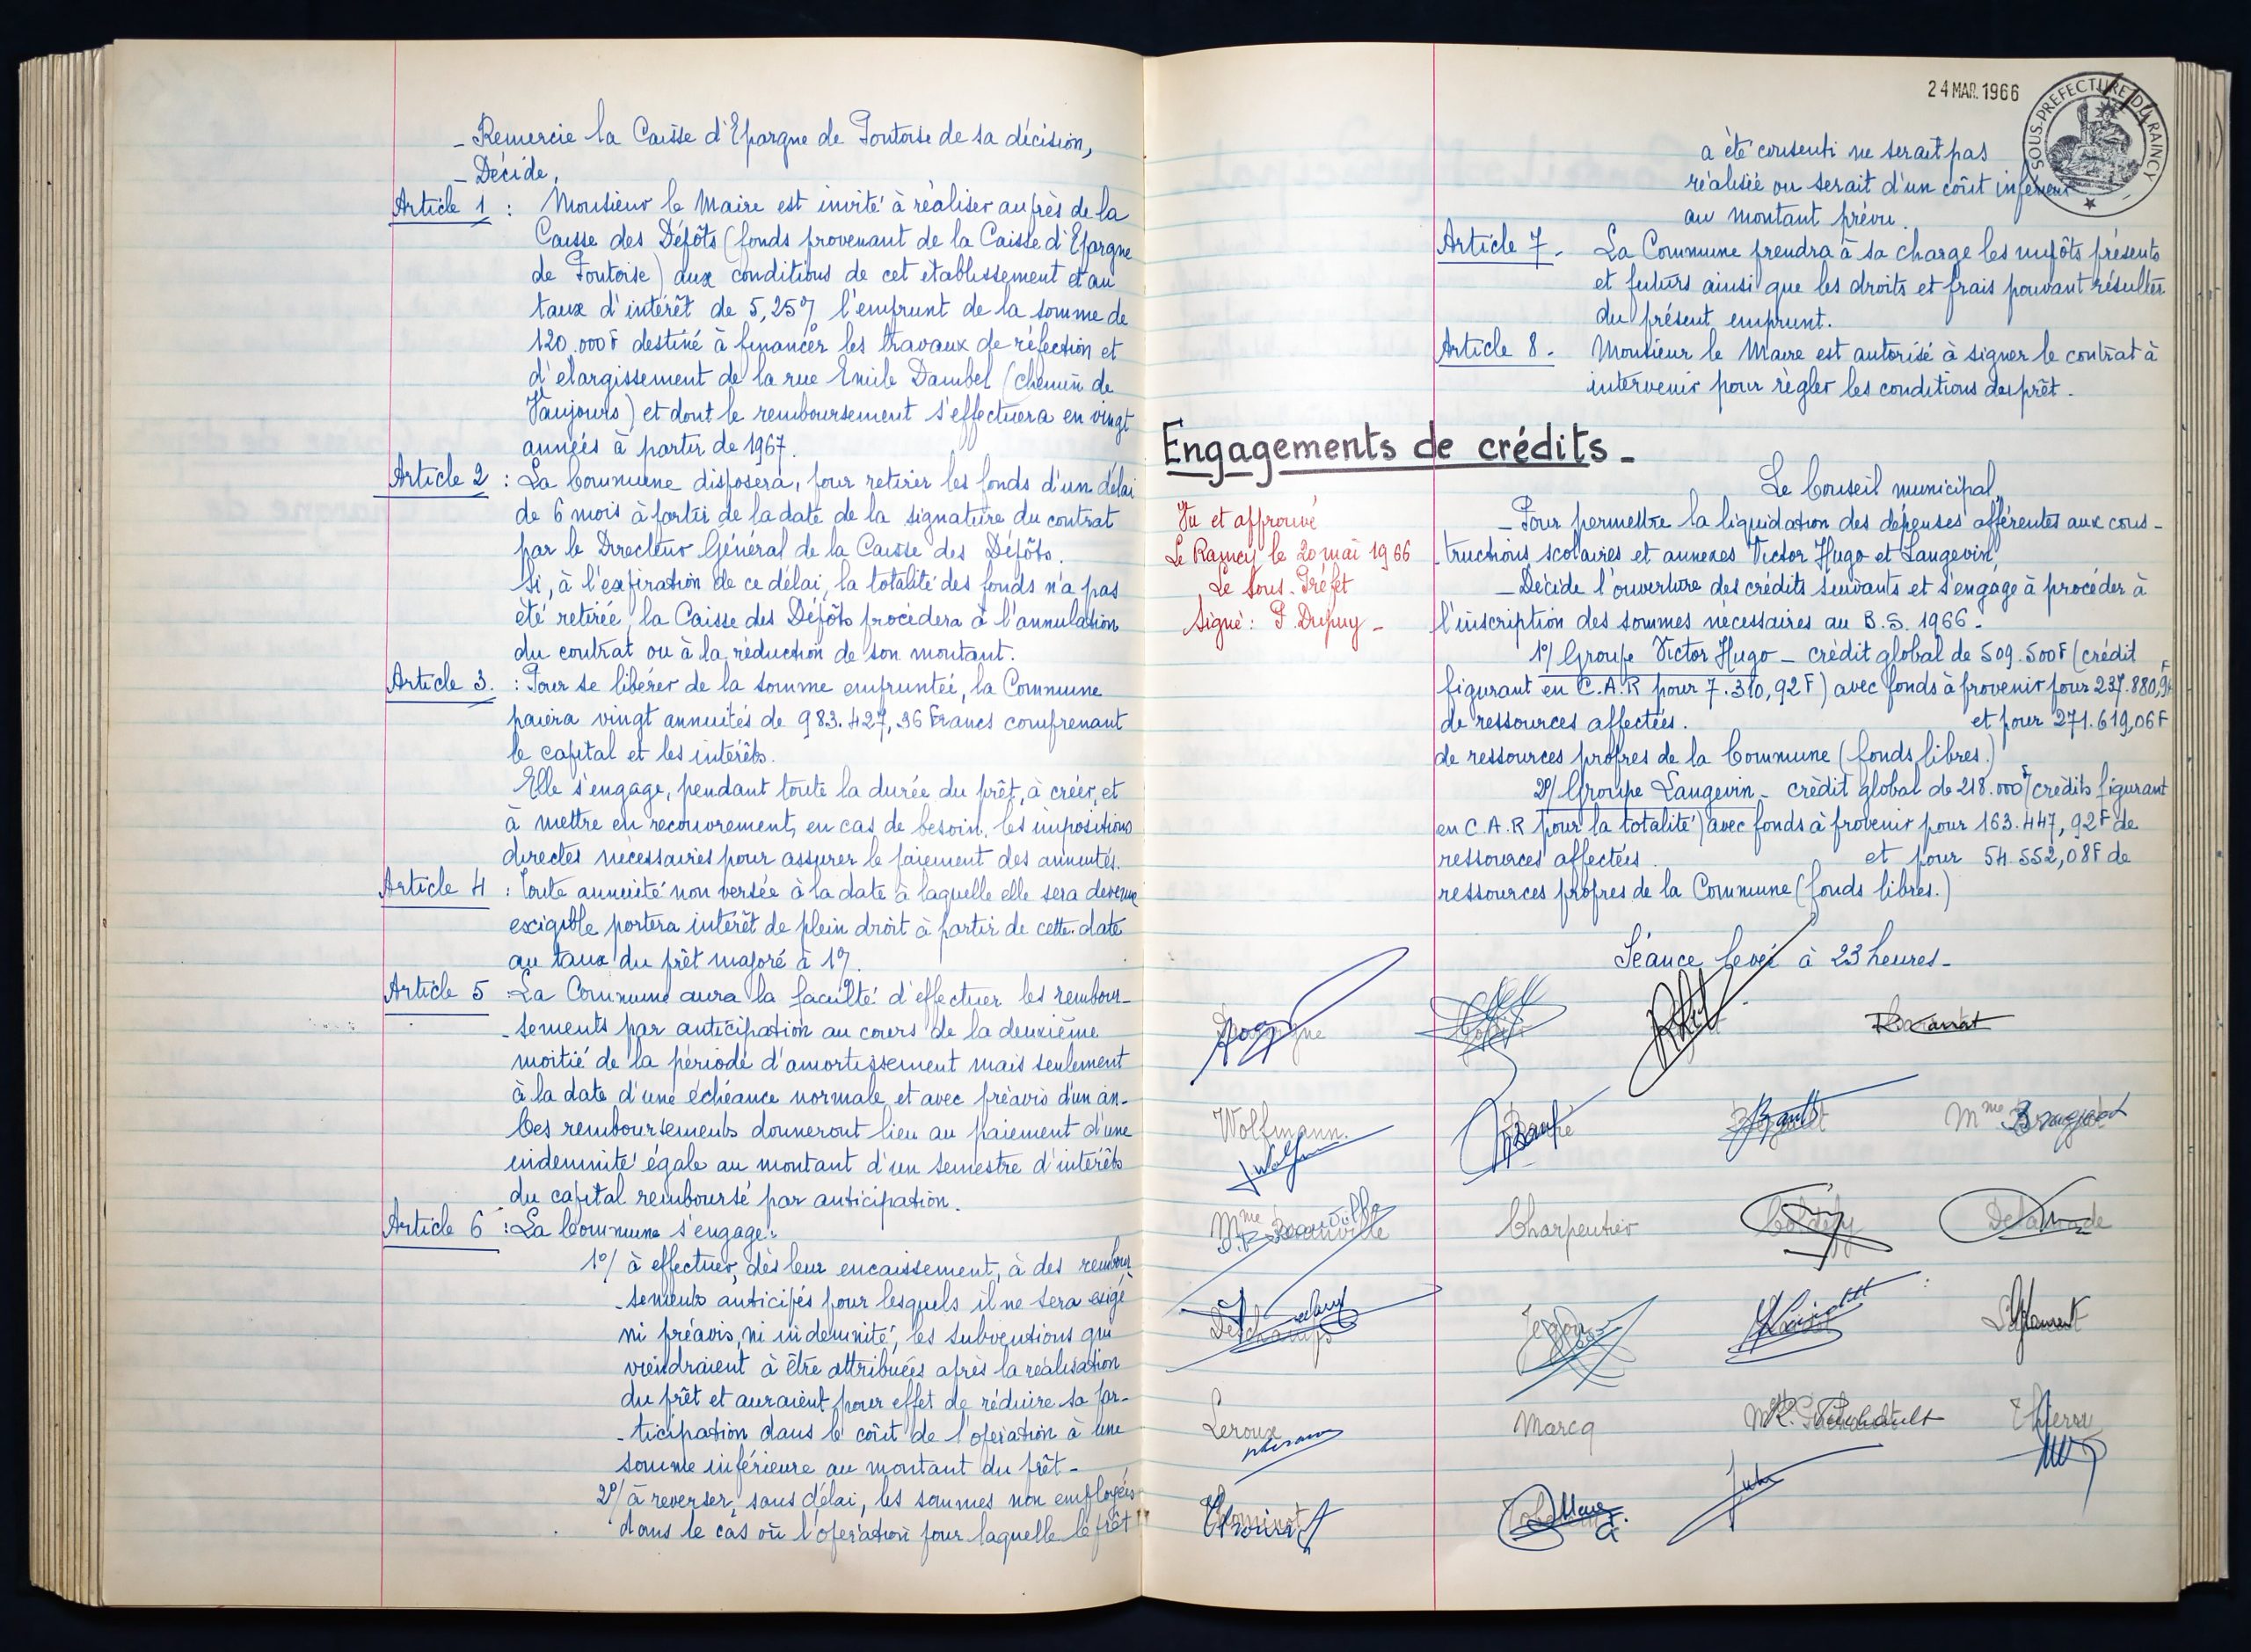 - Remercie la Caisse d'Epargne de Pontoise de sa décision,
- Décide,
Article 1 : Monsieur le Maire est invité à réaliser auprès de la
Caisse des Dépôts (fonds provenant de la Caisse d'Epargne
de Pontoise) aux conditions de cet établissement et au
taux d'intérêt de 5,25% l'emprunt de la somme de
120.000F destiné à financer les travaux de réfection et
d'élargissement de la rue Emile Dambel (chemin de
Vaujours) et dont le remboursement s'effectuera en vingt
années à partir de 1967.
Article 2 : La Commune disposera, pour retirer les fonds d'un délai
de 6 mois à partir de la date de la signature du contrat
par le Directeur Général de la Caisse des Dépôts.
Si, à l'expiration de ce délai, la totalité des fonds n'a pas
été retirée, la Caisse des Dépôts procèdera à l'annulation
du contrat ou à la réduction de son montant.
Article 3. : Pour se libérer de la somme empruntée, la Commune
paiera vingt annuités de 983.427,36 Francs comprenant
le capital et les intérêts.
Elle s'engage, pendant toute la durée du prêt, à créer, et
à mettre en recouvrement, en cas de besoin, les impositions
directes nécessaires pour assurer le paiement des annuités.
Article 4 : Toute annuité non versée à la date à laquelle elle sera devenue
exigible portera intérêt de plein droit à partir de cette date
au taux du prêt majoré à 1%.
Article 5 : La Commune aura la faculté d'effectuer les rembour-
-sements par anticipation au cours de la deuxième
moitié de la période d'amortissement mais seulement
à la date d'une échéance normale et avec préavis d'un an.
Ces remboursements donneront lieu au paiement d'une
indemnité égale au montant d'un semestre d'intérêts
du capital remboursé par anticipation.
Article 6 : La Commune s'engage :
1°/ à effectuer, dès leur encaissement, à des rembour
-sements anticipés pour lesquels il ne sera exigé
ni préavis, ni indemnité, les subventions qui
viendraient à être attribuées après la réalisation
du prêt et auraient pour effet de réduire sa par-
-ticipation dans le coût de l'opération à une
somme inférieure au montant du prêt -
2°/ à reverser, sans délai, les sommes non employées
dans le cas où l'opération pour laquelle le prêt
24 MAR. 1966
SOUS-PREFECTURE DU RAINCY
a été consenti ne serait pas
réalisée ou serait d'un coût inférieur
au montant prévu.
Article 7. - La Commune prendra à sa charge les impôts présents
et futurs ainsi que les droits et frais pouvant résulter
du présent emprunt.
Article 8. - Monsieur le Maire est autorisé à signer le contrat à
intervenir pour règler les conditions du prêt.
Engagements de crédits -
Vu et approuvé
Le Raincy le 20 mai 1966
Le Sous-Préfet
Signé : P. Dupuy -
Le Conseil municipal,
- Pour permettre la liquidation des dépenses afférentes aux cons-
-tructions scolaires et annexes Victor Hugo et Langevin,
- Décide l'ouverture des crédits suivants et s'engage à procéder à
l'inscription des sommes nécessaires au B.S. 1966 -
1°/ Groupe Victor Hugo - crédit global de 509.500F (crédit
figurant en C.A.R pour 7.310,92F) avec fonds à provenir pour 237.880,94F
de ressources affectées. et pour 271.619,06F
de ressources propres de la Commune (fonds libres.)
2°/ Groupe Langevin - crédit global de 218.000F (crédits figurant
en C.A.R pour la totalité) avec fonds à provenir pour 163.447,92F de
ressources affectées. et pour 54.552,08F de
ressources propres de la Commune (fonds libres.)
Séance levée à 23 heures -
Wolfmann.
Mme
Mme Beauville
Charpentier
Coldefy
Delamade
Deschamps
Laurent
Leroux
Marcq
Thierry